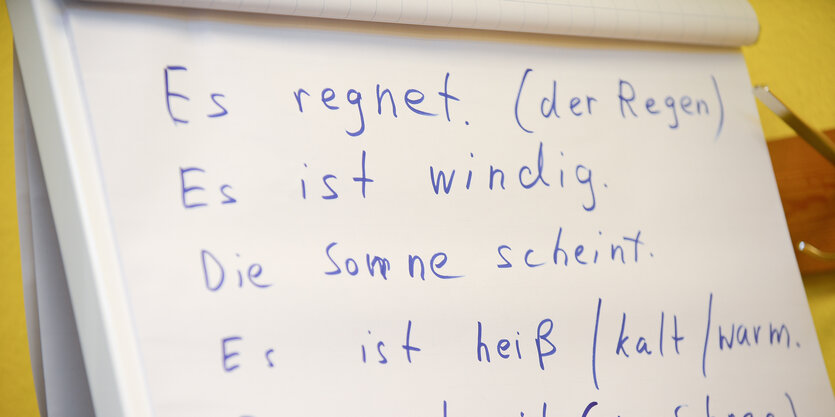 Es regnet. (der Regen)
Es ist windig.
Die Sonne scheint.
Es ist heiß / kalt / warm.